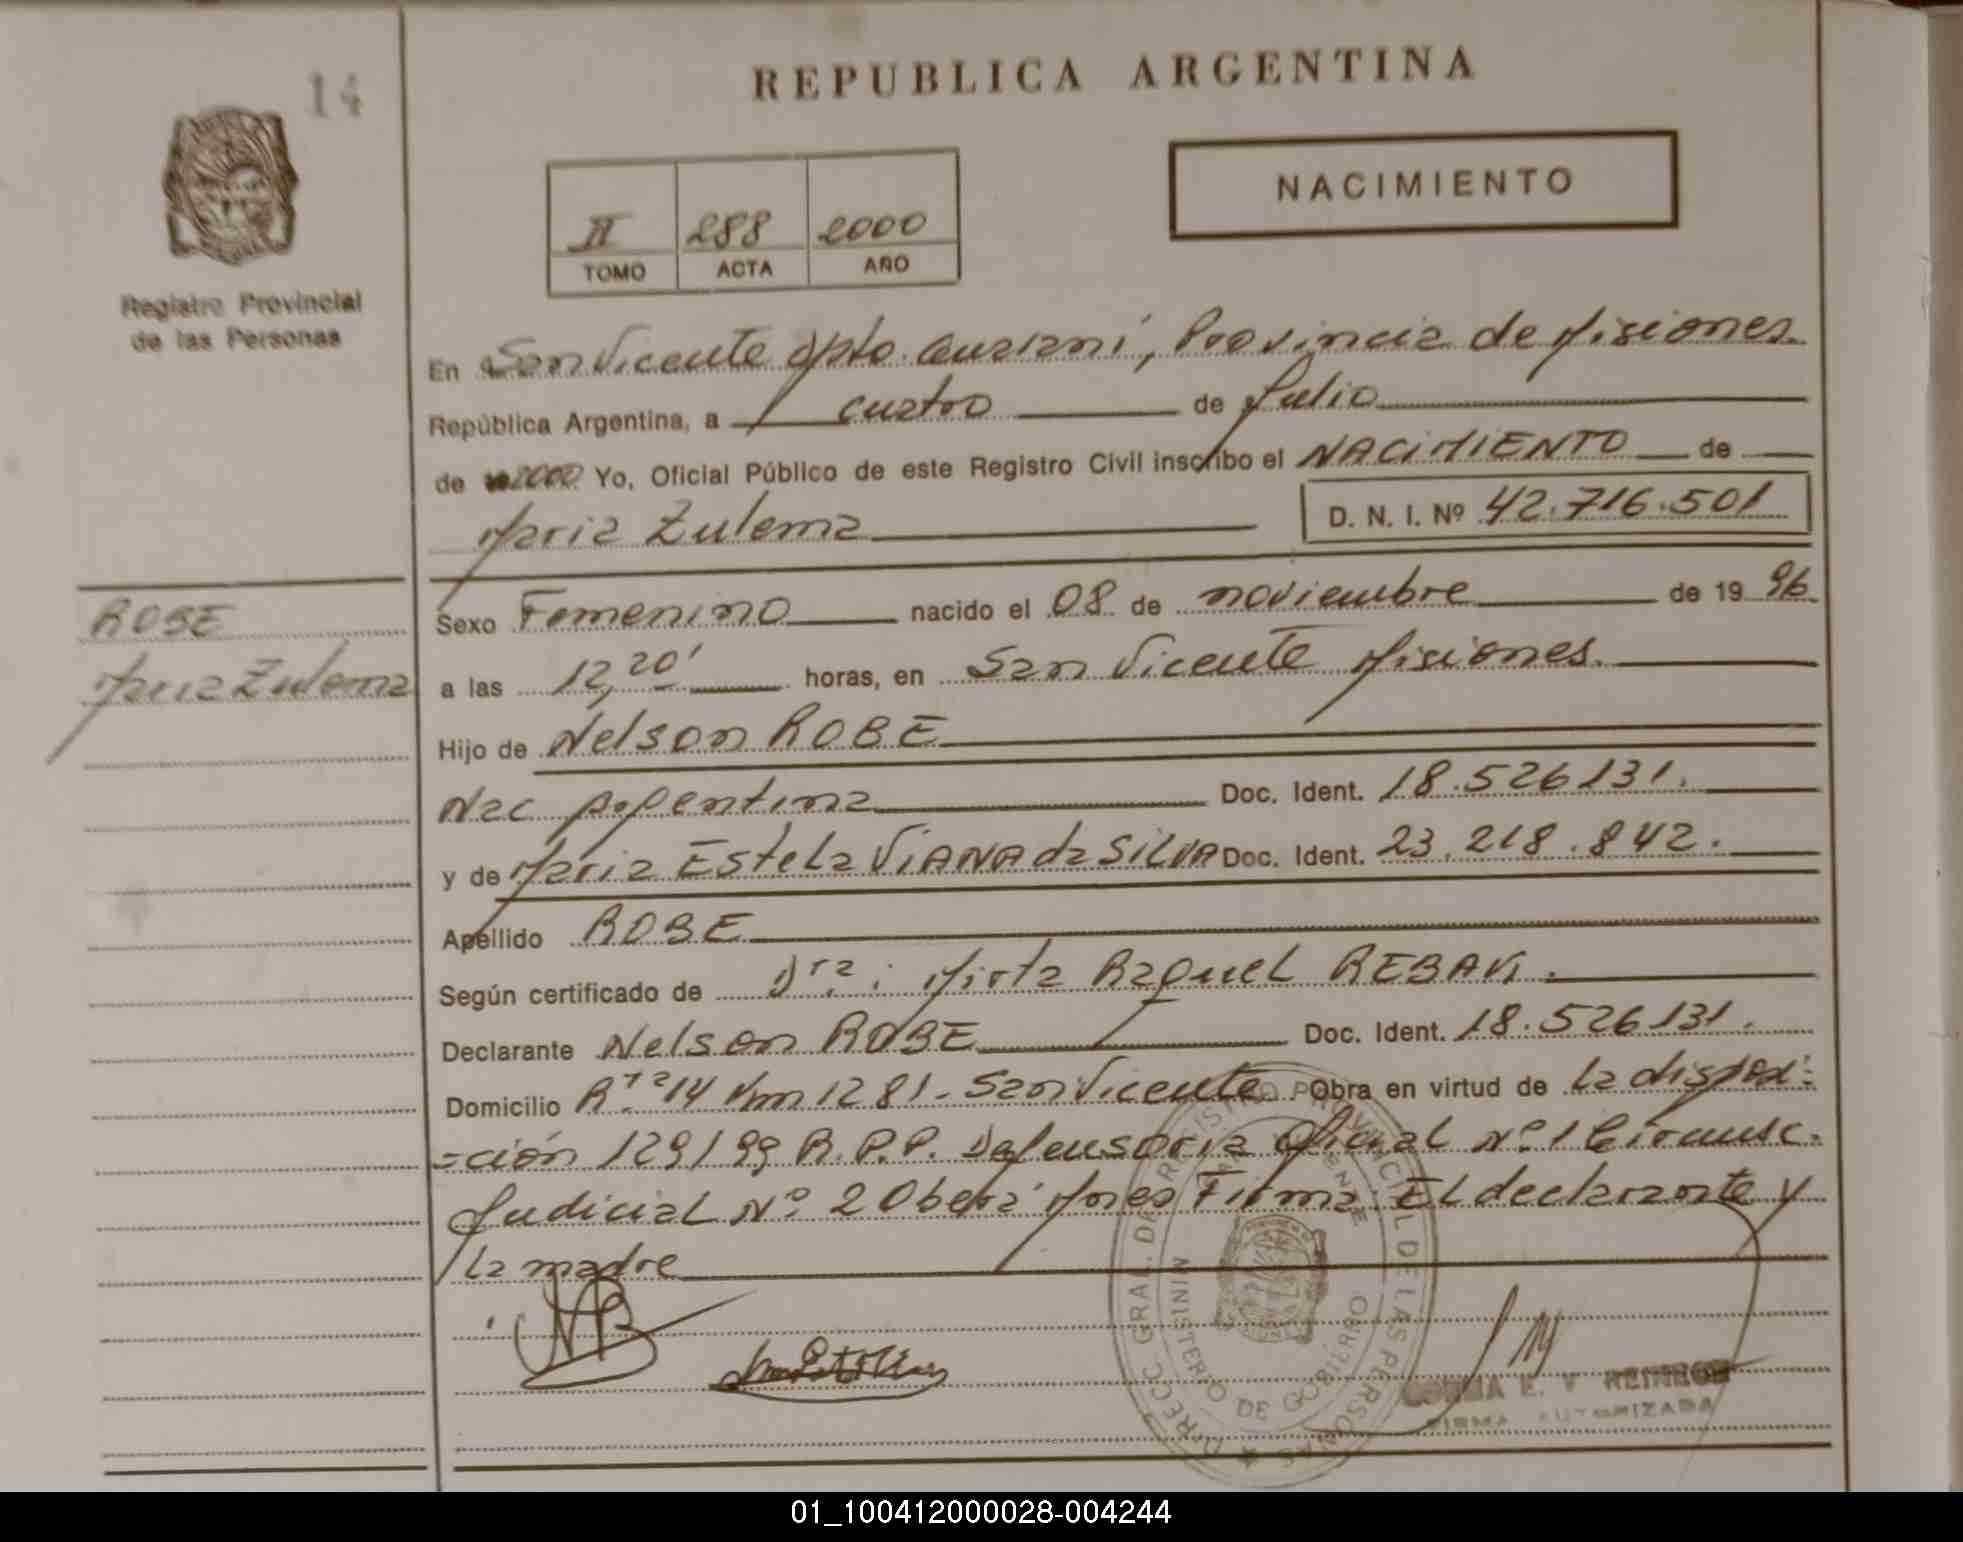 14
REPUBLICA ARGENTINA
NACIMIENTO
II 288 2000
TOMO ACTA AÑO
Registro Provincial
de las Personas
En San Vicente Dpto. Guaraní, Provincia de Misiones.
República Argentina, a cuatro de Julio
de 2000 Yo, Oficial Público de este Registro Civil inscribo el NACIMIENTO de
Maria Zulema D. N. I. Nº 42.716.501
ROBE
Maria Zulema
Sexo Femenino nacido el 08 de noviembre de 19 96
a las 12,20' horas, en San Vicente Misiones.
Hijo de Nelson ROBE
Nac Argentina Doc. Ident. 18.526131.
y de Maria Estela VIANA da SILVA Doc. Ident. 23.218.842.
Apellido ROBE
Según certificado de Dra: Mirta Raquel
Declarante Nelson ROBE Doc. Ident. 18.526131.
Domicilio Rta 14 Km 1281-San Vicente Obra en virtud de la disposi=
=ción 129/99 R.P.P. Defensoria Oficial Nº1 Circunsc.
Judicial Nº 2 Oberá Mnes Firma: El declarante y
la madre
DIRECC. GRAL. DE REGISTRO PROVINCIAL DE LAS PERSONAS
MINISTERIO DE GOBIERNO
E. V.
FIRMA AUTORIZADA
01_100412000028-004244